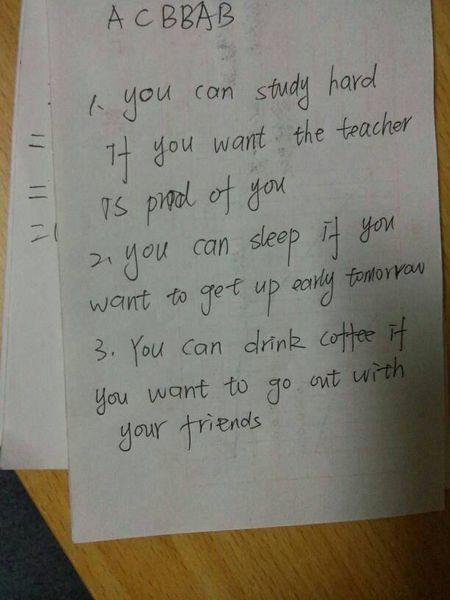 A C B B A B
1. you can study hard
If you want the teacher
is prod of you
2. you can sleep if you
want to get up early tomorrow
3. You can drink coffee if
you want to go out with
your friends
=
=
=